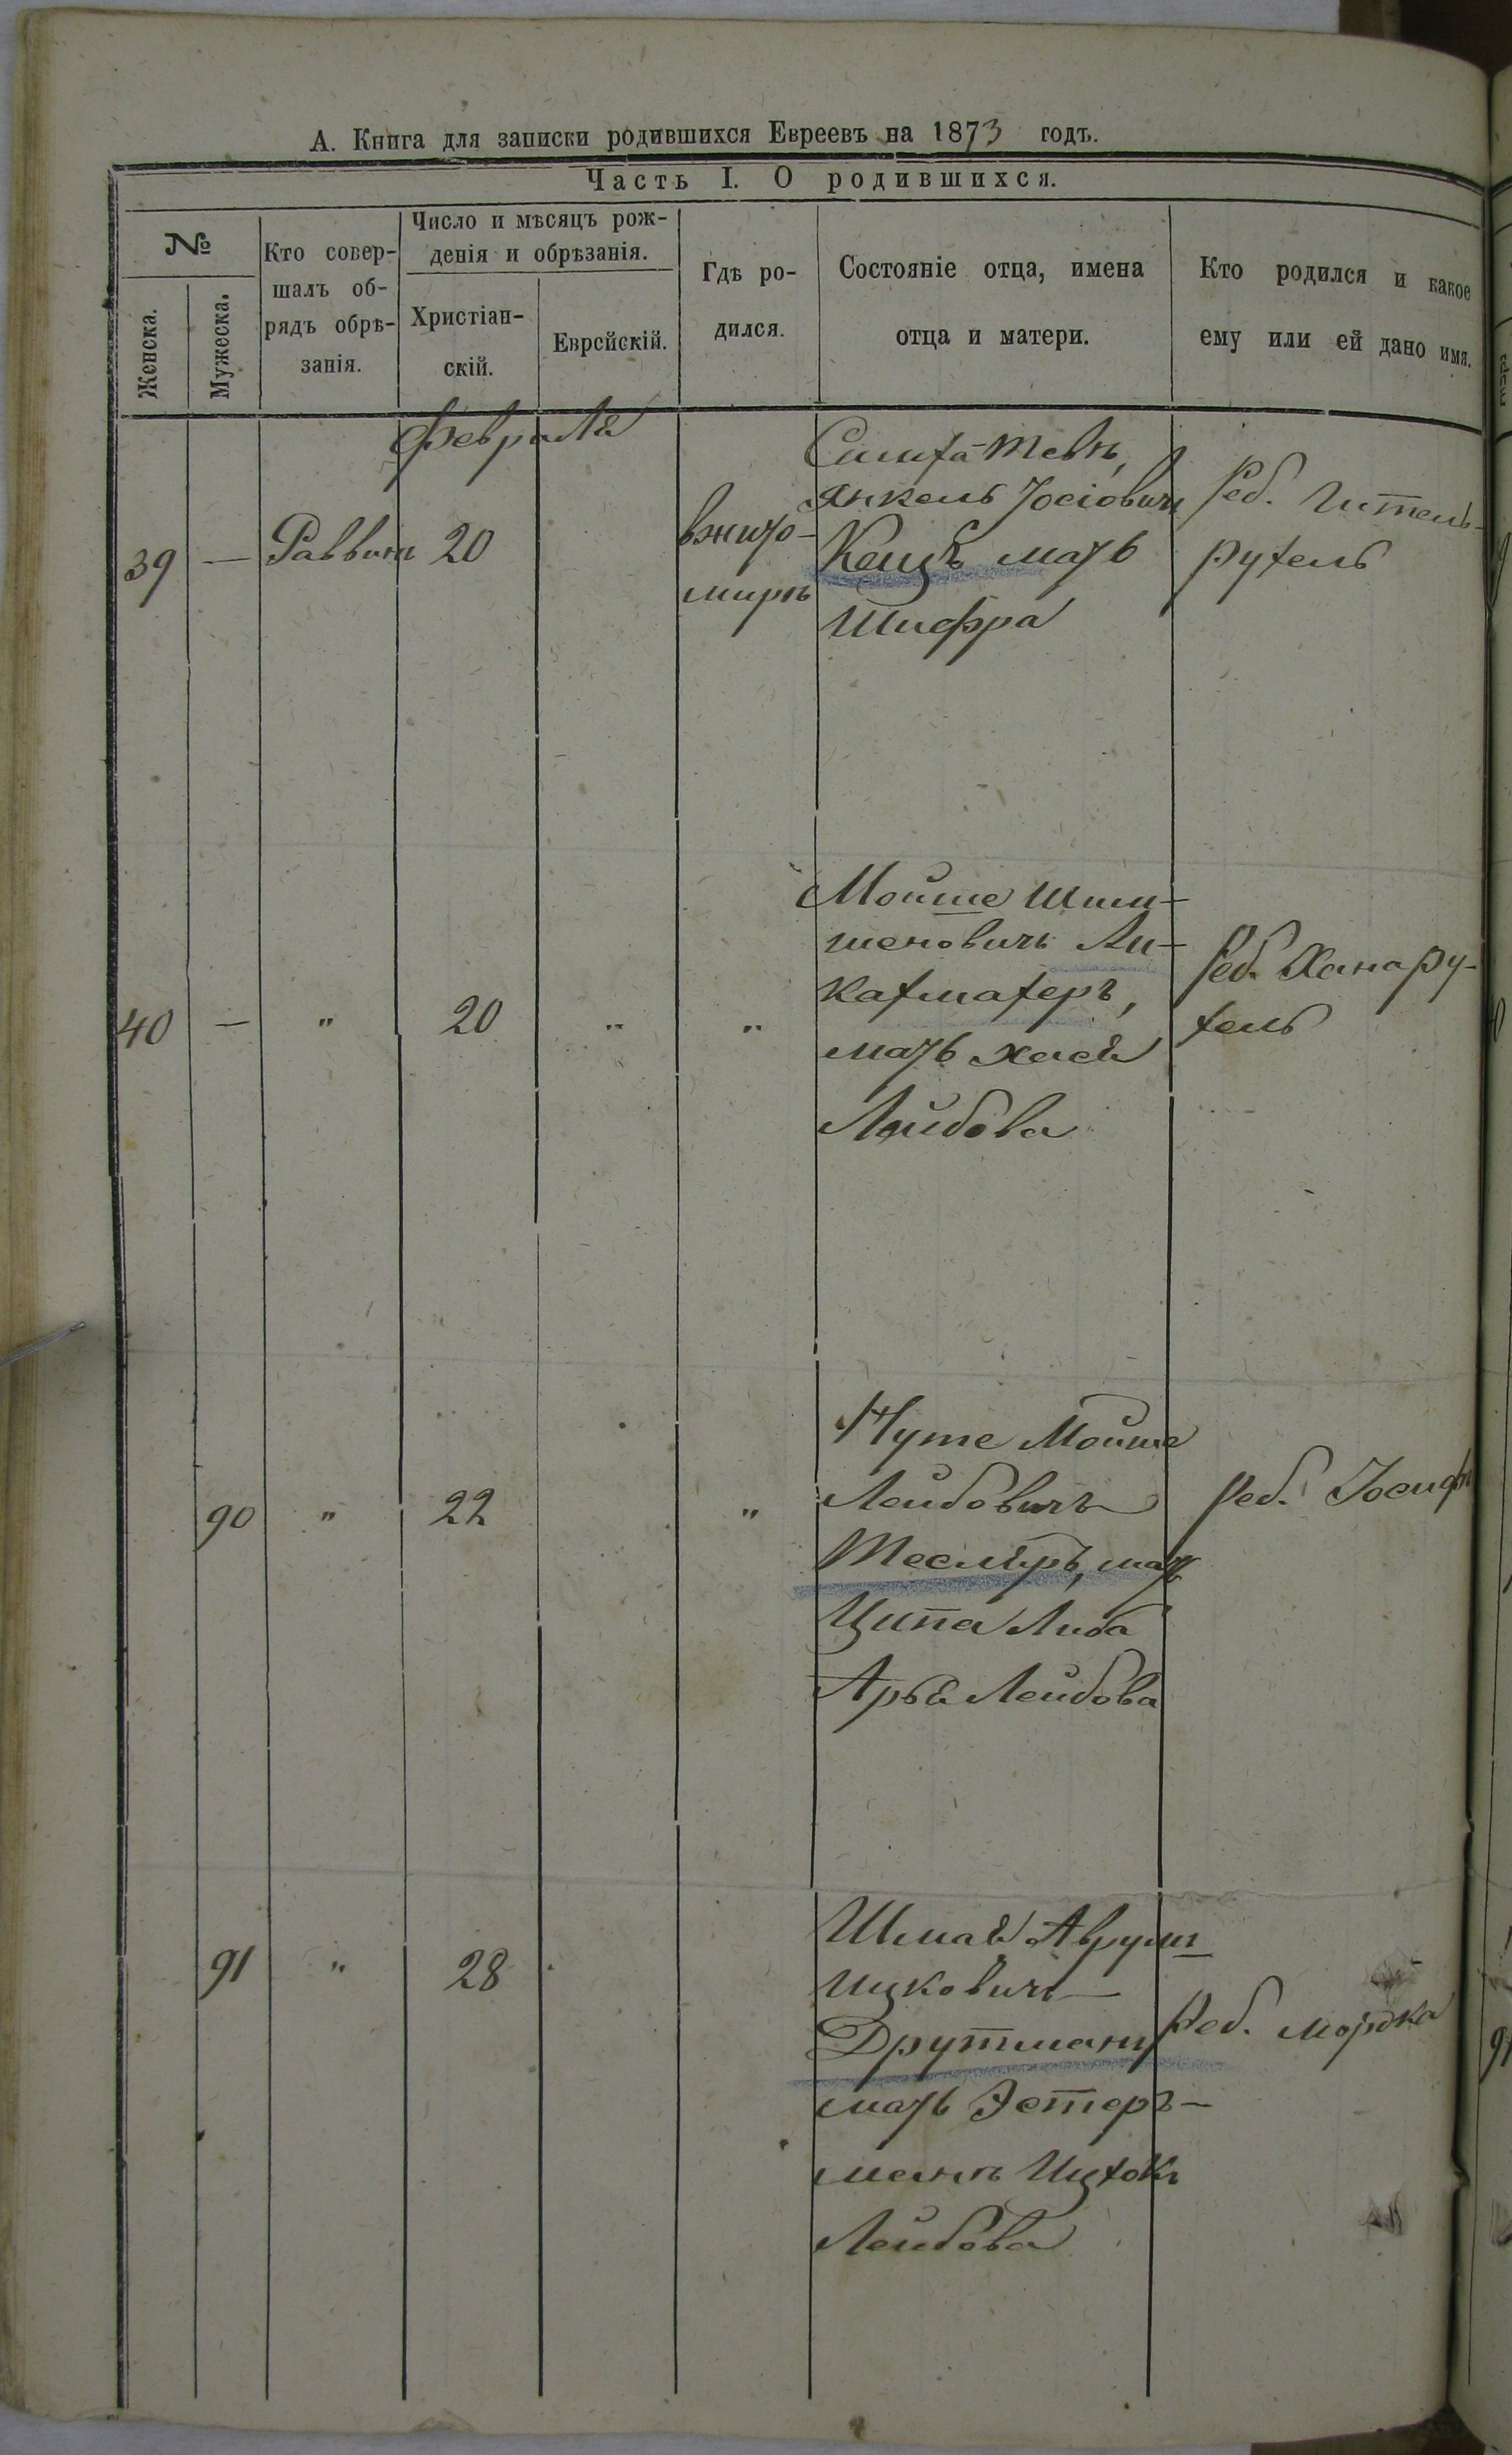 А. Книга для записки родившихся Евреевъ на 1873 годъ.
Часть I. О родившихся.
№
Женска.
Мужеска.
Кто совер-
шалъ об-
рядъ обрѣ-
занія.
Число и мѣсяцъ рож-
денія и обрѣзанія.
Христіан-
скій.
Еврейскій.
Гдѣ ро-
дился.
Состояніе отца, имена
отца и матери.
Кто родился и какое
ему или ей дано имя.
февраля
39 — Раввин 20
вжито-
мирѣ
Симха-Тевъ,
Янкель Іосіовичъ
Кацъ мать
Шифра
Реб. Гитель-
рухель
40 — " 20 " "
Мойше Шми-
шеновичъ Ли-
кахмахеръ,
мать хася
Лейбова
Реб. Хана Ру-
хель
90 " 22 "
Нуте Мойше
Лейбовичъ
Теслеръ, мать
Ципа Либа
Арья Лейбова
Реб. Іосифъ
91 " 28
Шмая Аврумъ
Ицковичъ
Друтманъ
мать Эстеръ-
маня Ицхокъ
Лейбова
Реб. мордка